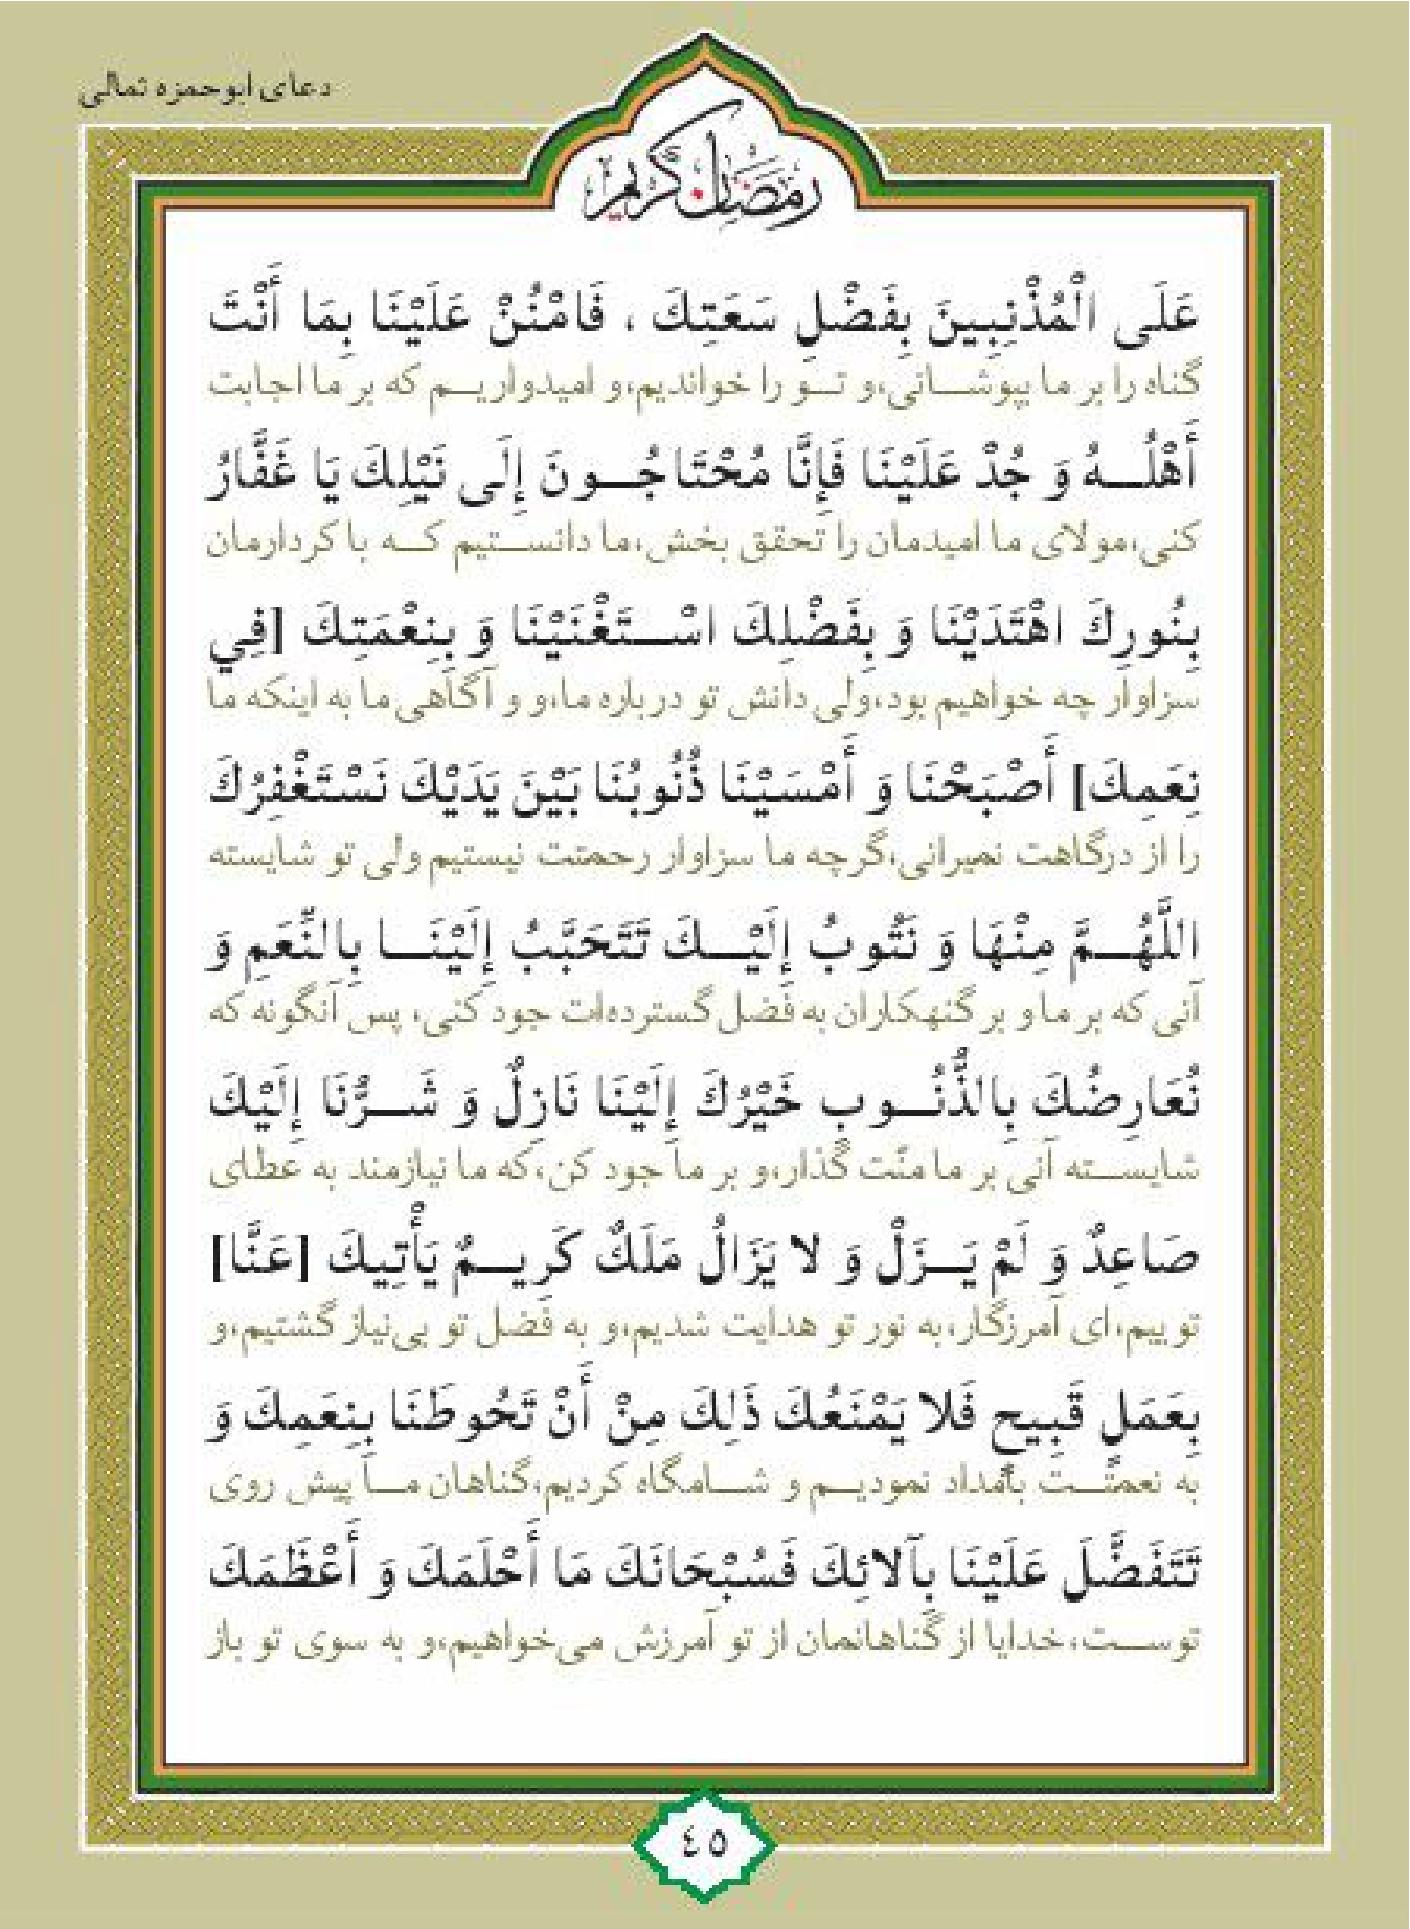 دعای ابوحمزه ثمالی
رمضان كريم
عَلَى الْمُذْنِبِينَ بِفَضْلِ سَعَتِكَ ، فَامْنُنْ عَلَيْنَا بِمَا أَنْتَ
گناه را بر ما بپوشـــانی،و تـــو را خواندیم،و امیدواریـــم که بر ما اجابت
أَهْلُـــهُ وَ جُدْ عَلَيْنَا فَإِنَّا مُحْتَاجُـــونَ إِلَى نَيْلِكَ يَا غَفَّارُ
کنی،مولای ما امیدمان را تحقق بخش،ما دانســـتیم کـــه با کردارمان
بِنُورِكَ اهْتَدَيْنَا وَ بِفَضْلِكَ اسْـــتَغْنَيْنَا وَ بِنِعْمَتِكَ [فِي
سزاوار چه خواهیم بود،ولی دانش تو درباره ما،و و آگاهی ما به اینکه ما
نِعَمِكَ] أَصْبَحْنَا وَ أَمْسَيْنَا ذُنُوبُنَا بَيْنَ يَدَيْكَ نَسْتَغْفِرُكَ
را از درگاهت نمیرانی،گرچه ما سزاوار رحمتت نیستیم ولی تو شایسته
اللَّهُـــمَّ مِنْهَا وَ نَتُوبُ إِلَيْـــكَ تَتَحَبَّبُ إِلَيْنَـــا بِالنِّعَمِ وَ
آنی که بر ما و بر گنهکاران به فضل گسترده‌ات جود کنی، پس آنگونه که
نُعَارِضُكَ بِالذُّنُـــوبِ خَيْرُكَ إِلَيْنَا نَازِلٌ وَ شَـــرُّنَا إِلَيْكَ
شایســـته آنی بر ما منّت گذار،و بر ما جود کن،که ما نیازمند به عطای
صَاعِدٌ وَ لَمْ يَـــزَلْ وَ لا يَزَالُ مَلَكٌ كَرِيـــمٌ يَأْتِيكَ [عَنَّا]
توییم،ای آمرزگار،به نور تو هدایت شدیم،و به فضل تو بی‌نیاز گشتیم،و
بِعَمَلٍ قَبِيحٍ فَلا يَمْنَعُكَ ذَلِكَ مِنْ أَنْ تَحُوطَنَا بِنِعَمِكَ وَ
به نعمتـــت بامداد نمودیـــم و شـــامگاه کردیم،گناهان مـــا پیش روی
تَتَفَضَّلَ عَلَيْنَا بِآلائِكَ فَسُبْحَانَكَ مَا أَحْلَمَكَ وَ أَعْظَمَكَ
توســـت،خدایا از گناهانمان از تو آمرزش می‌خواهیم،و به سوی تو باز
٤٥